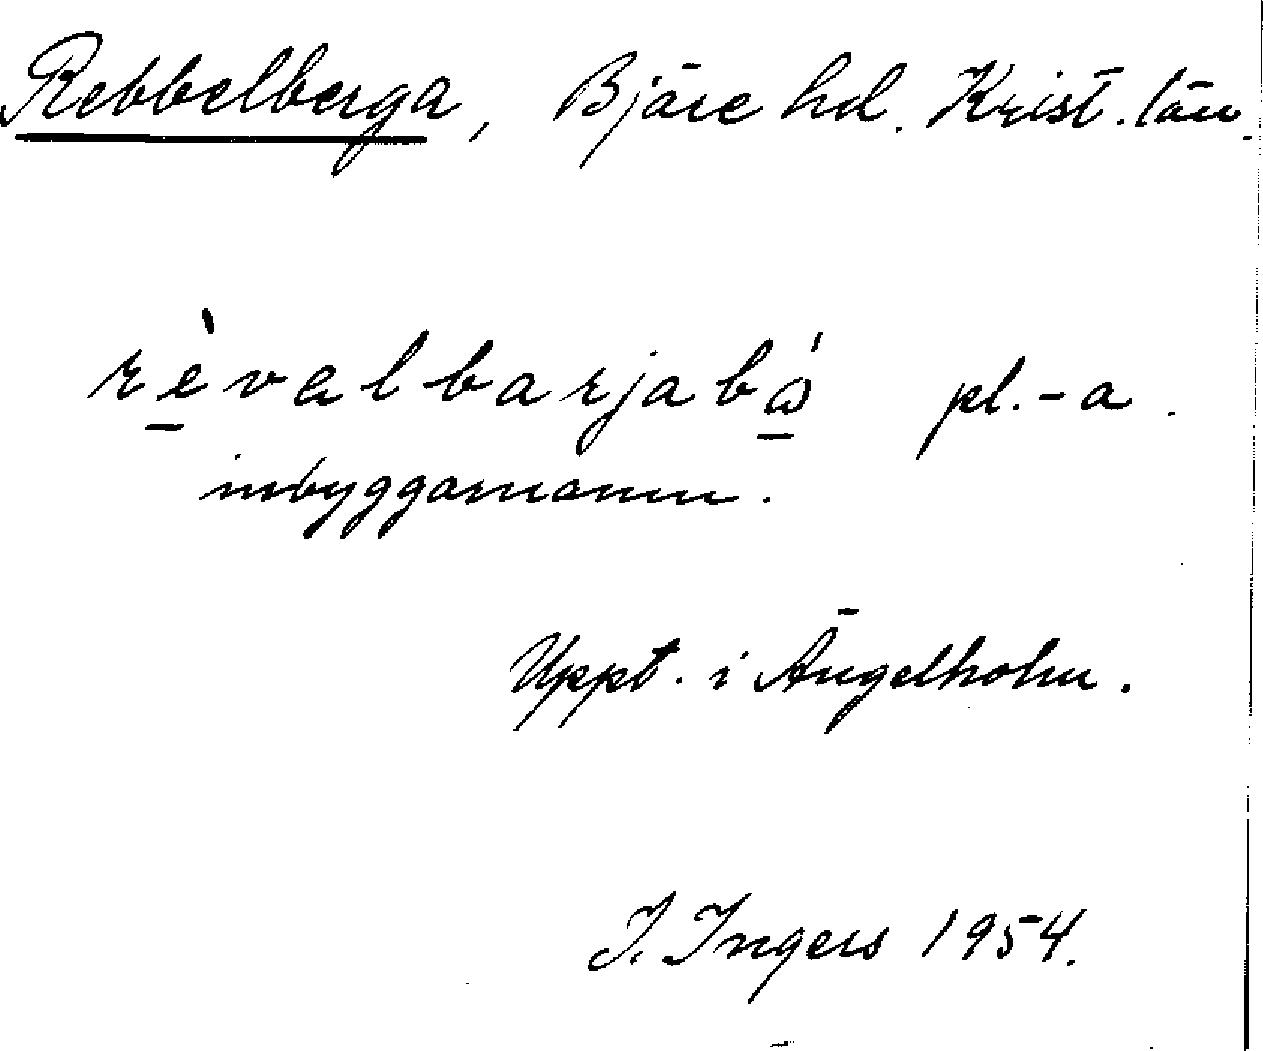 Rebbelberga, Bjäre hd. Krist. län.
rèvalbarjabó pl. -a.
inbyggarnamn.
Uppt. i Ängelholm.
I. Ingers 1954.